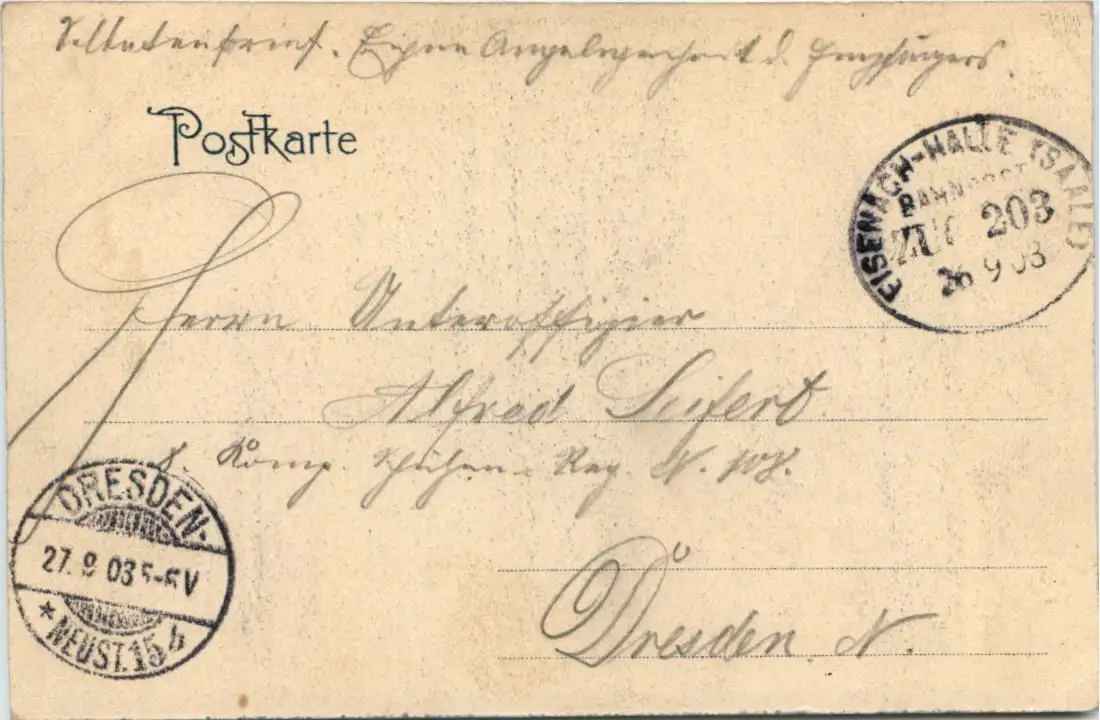 Soldatenbrief. Eigene Angelegenheit d. Empfängers.
Postkarte
EISENACH-HALLE (SAALE)
BAHNPOST
ZUG 203
26 9 03
Herrn Unteroffizier
Alfred Seifert
8. Komp. Schützen-Reg. N. 108.
Dresden N.
DRESDEN-
27. 9 03 5-6V
* NEUST. 15 b